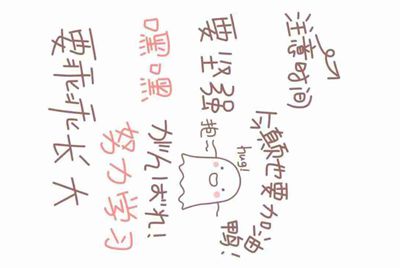 注意时间
颠也要加油鸭！
要坚强
抱～
hug!
嘿嘿
がんばれ！
努力学习
要乖乖长大